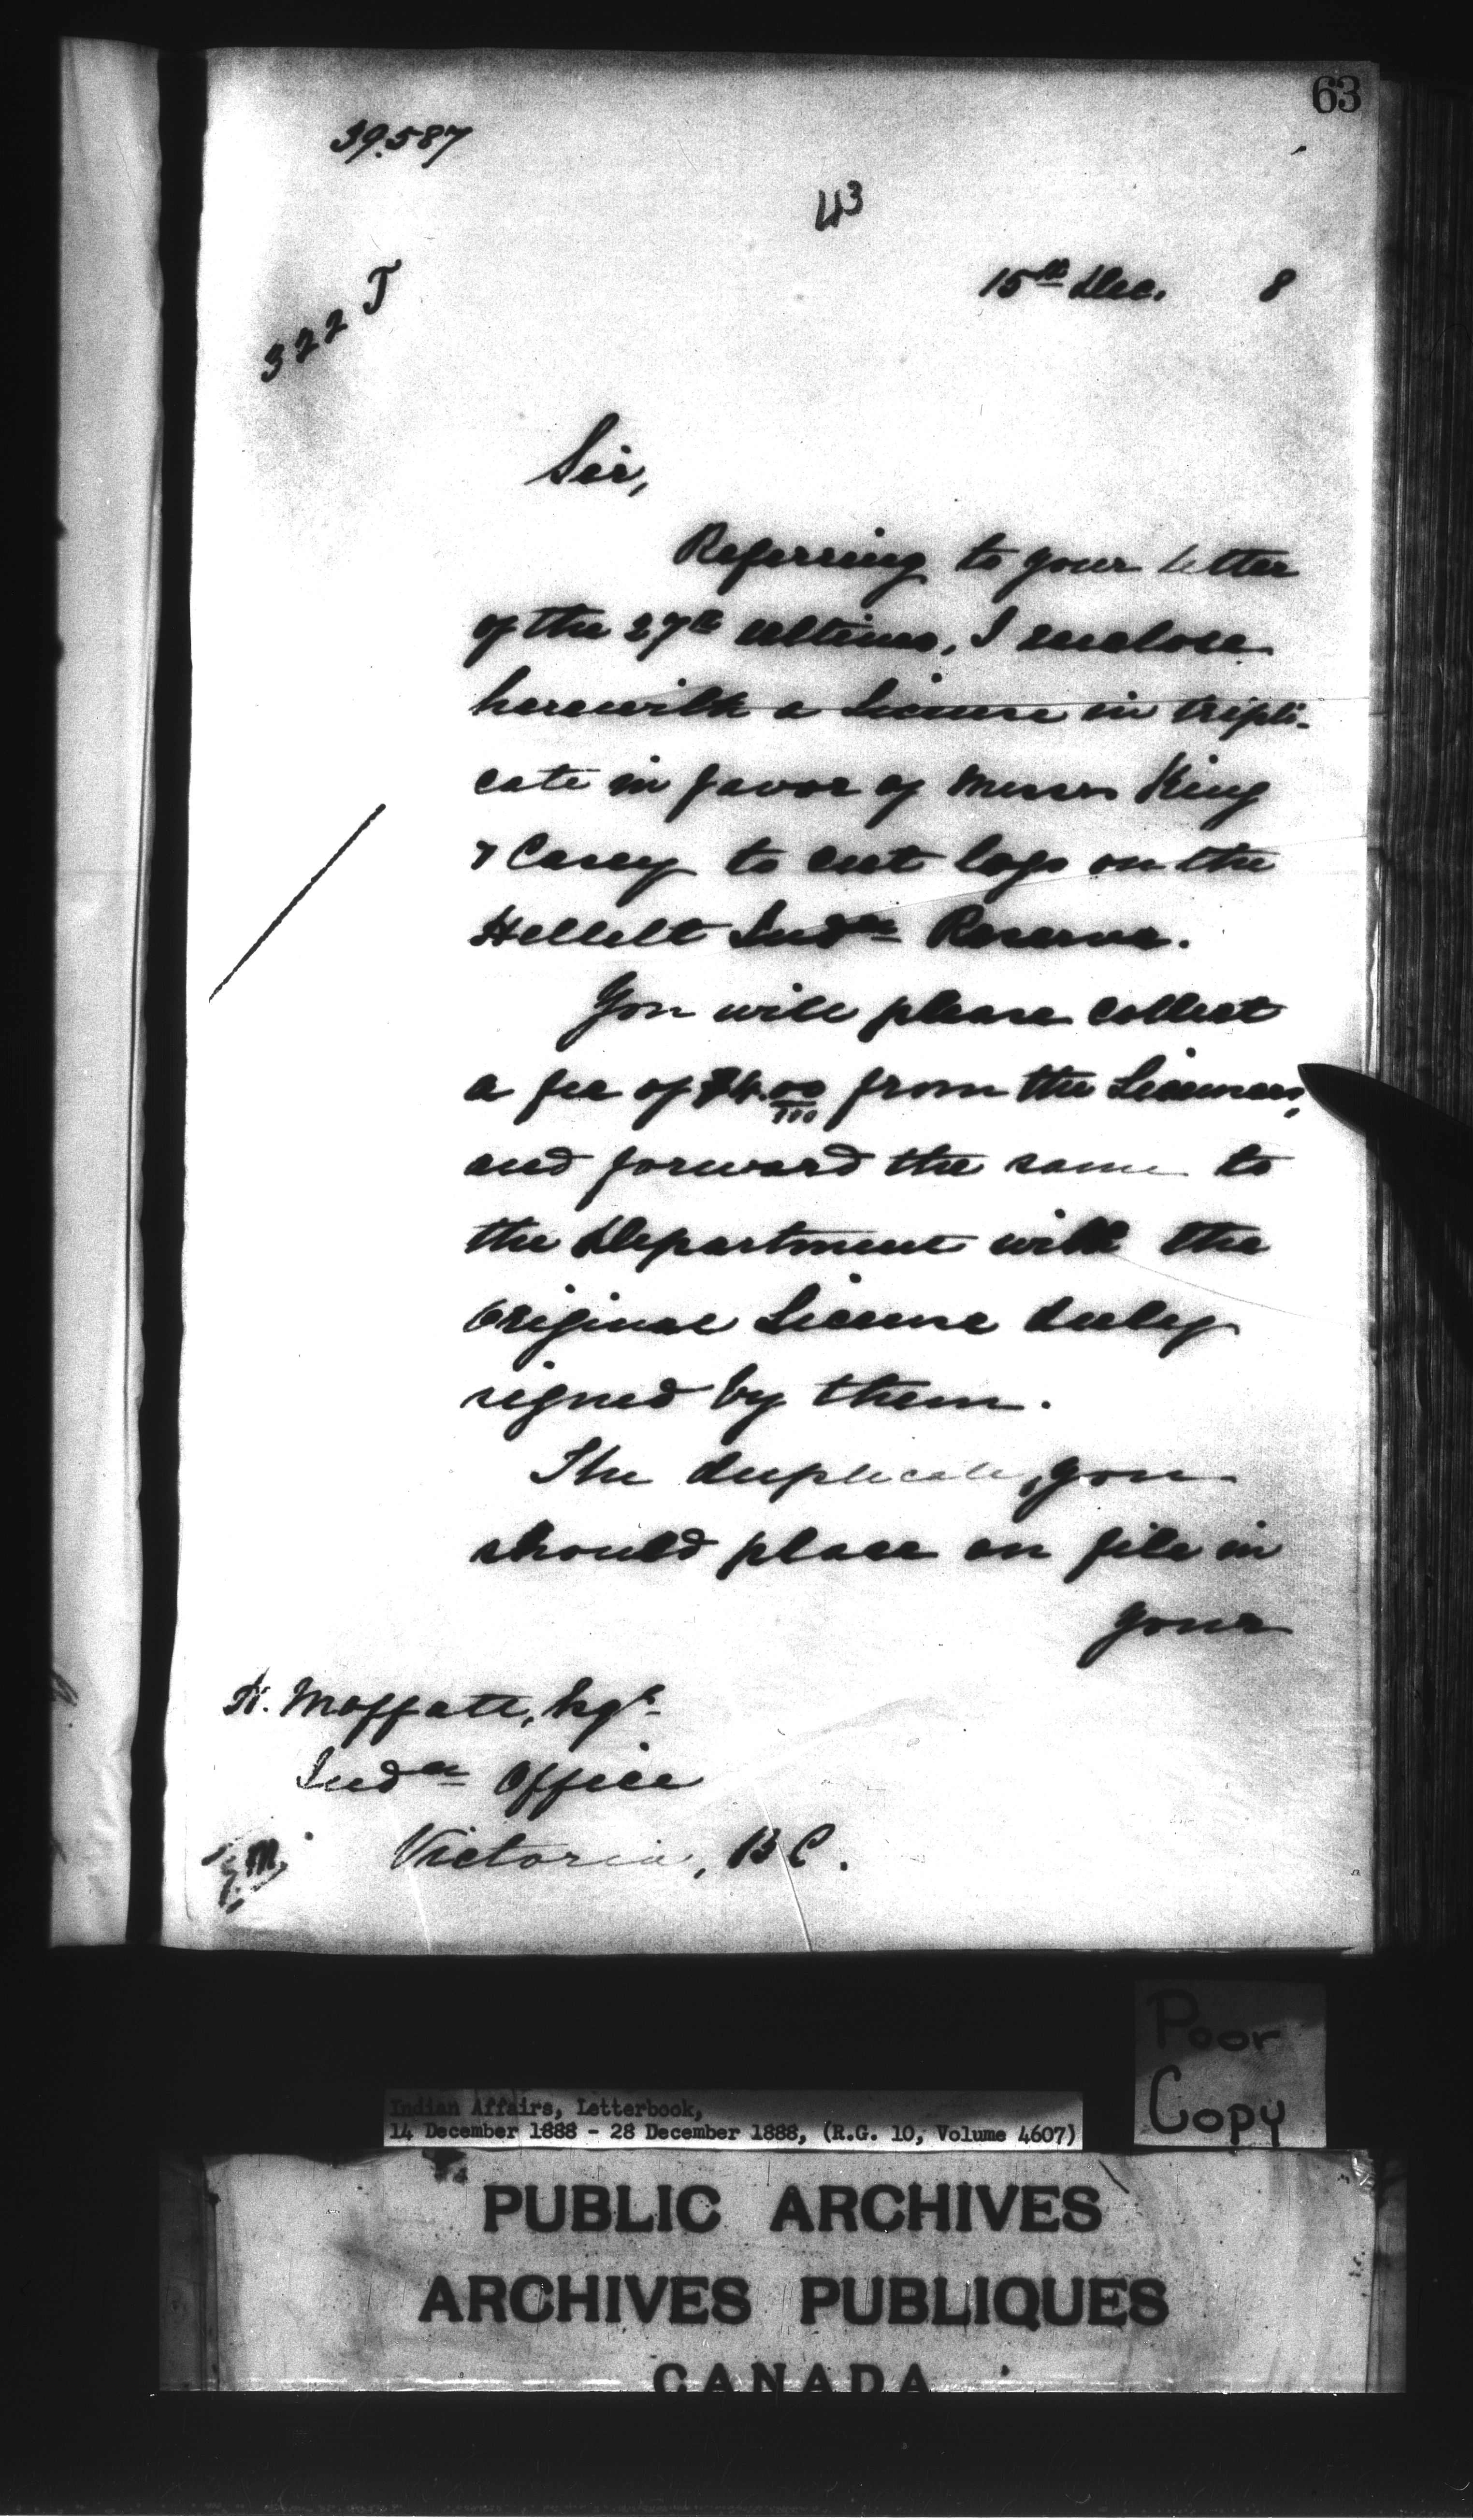 63
39.587
43
322 T
15th Dec. 8
Sir,
Referring to your letter
of the 27th ultimo, I enclose
herewith a License in tripli-
cate in favor of Messrs King
& Casey to cut logs on the
Hellelt Indn Reserve.
You will please collect
a fee of $4.00/100 from the Licensees,
and forward the same to
the Department with the
original License duly
signed by them.
The duplicate, you
should place on file in
your
H. Moffatt, Esqr
Indn Office
Victoria, B C.
Poor
Copy
Indian Affairs, Letterbook,
14 December 1888 - 28 December 1888, (R.G. 10, Volume 4607)
PUBLIC ARCHIVES
ARCHIVES PUBLIQUES
CANADA